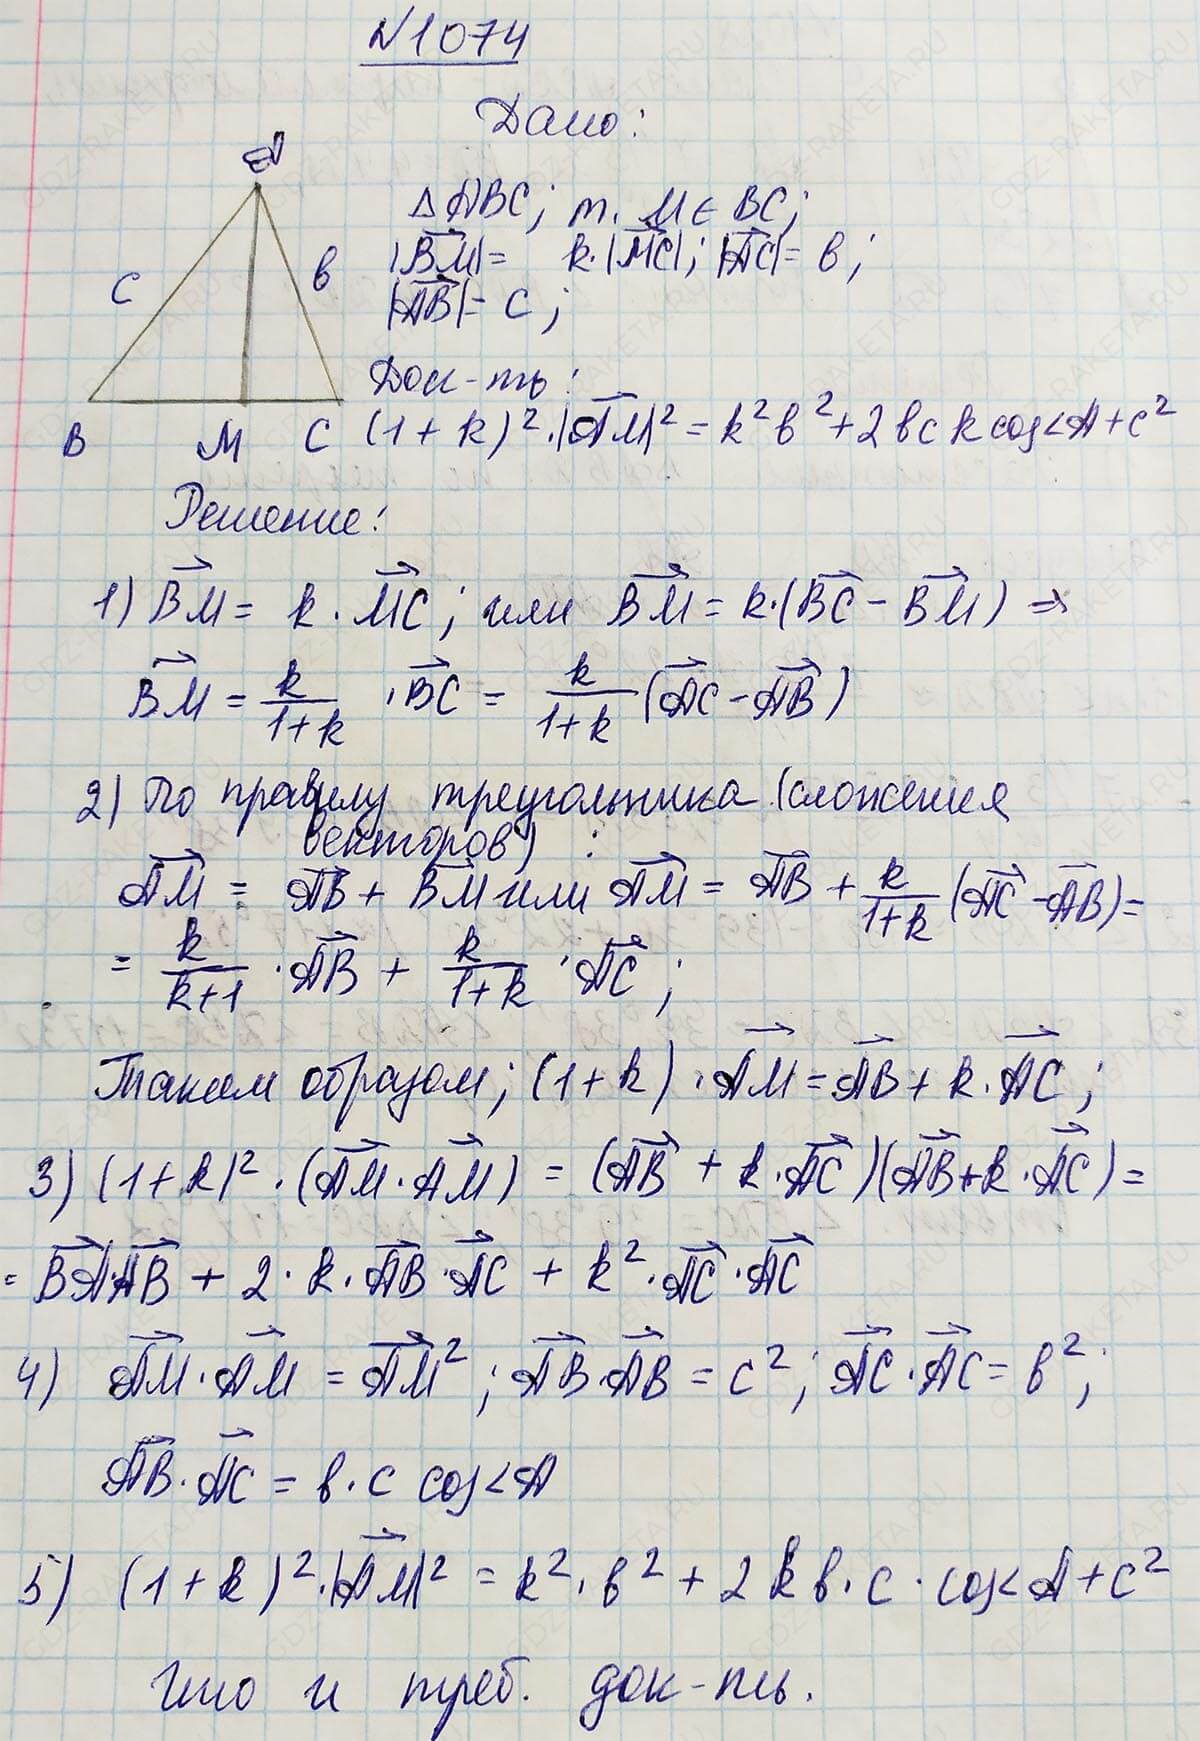 №1074
Дано:
△ABC; т. M ∈ BC;
|BM⃗| = k·|MC⃗|; |AC⃗| = b;
|AB⃗| = c;
c
b
Док-ть:
B M C
(1+k)²·|AM⃗|² = k²b² + 2bck cos∠A + c²
Решение:
1) BM⃗ = k · MC⃗; или BM⃗ = k·(BC⃗ − BM⃗) ⇒
BM⃗ = k/(1+k) · BC⃗ = k/(1+k) (AC⃗ − AB⃗)
2) По правилу треугольника (сложения
векторов) :
AM⃗ = AB⃗ + BM⃗ или AM⃗ = AB⃗ + k/(1+k) (AC⃗ − AB⃗) =
= k/(k+1) · AB⃗ + k/(1+k) · AC⃗;
Таким образом; (1+k) · AM⃗ = AB⃗ + k · AC⃗;
3) (1+k)² · (AM⃗ · AM⃗) = (AB⃗ + k · AC⃗)(AB⃗ + k · AC⃗) =
= BA⃗·AB⃗ + 2 · k · AB⃗ · AC⃗ + k² · AC⃗ · AC⃗
4) AM⃗ · AM⃗ = AM⃗²; AB⃗ · AB⃗ = c²; AC⃗ · AC⃗ = b²;
AB⃗ · AC⃗ = b · c cos∠A
5) (1+k)²·|AM⃗|² = k² · b² + 2kb · c · cos∠A + c²
Что и треб. док-ть.